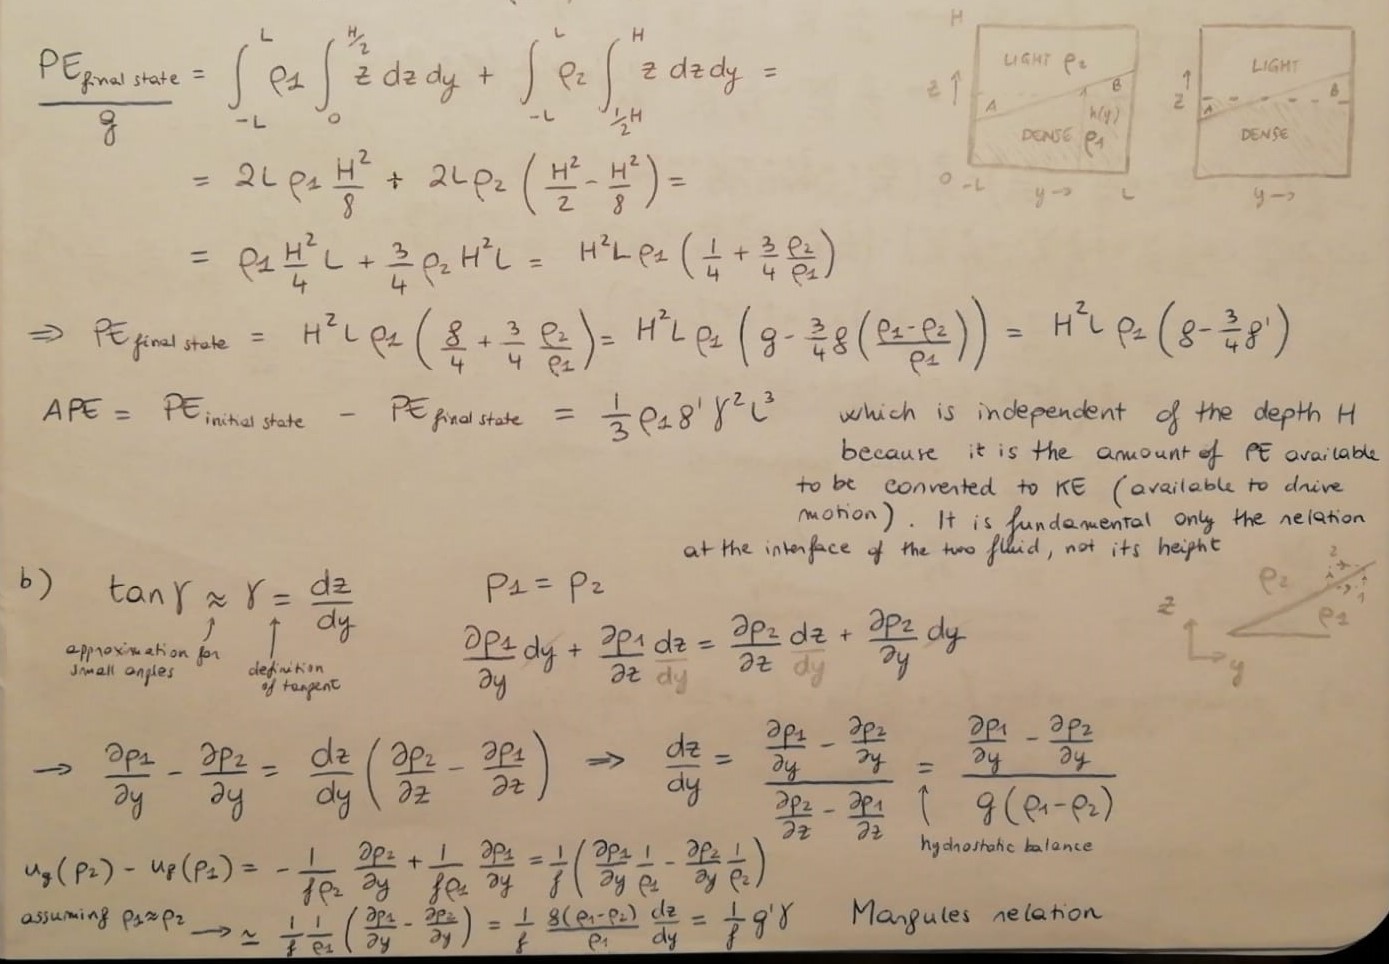 PE_{final state} / g = ∫_{-L}^{L} ρ1 ∫_{0}^{H/2} z dz dy + ∫_{-L}^{L} ρ2 ∫_{1/2 H}^{H} z dz dy =
= 2L ρ1 H²/8 + 2L ρ2 (H²/2 - H²/8) =
= ρ1 H²/4 L + 3/4 ρ2 H² L = H² L ρ1 (1/4 + 3/4 ρ2/ρ1)
H
LIGHT ρ2
z ↑
A
B
h(y)
DENSE ρ1
0 -L y → L
LIGHT
z ↑
A
B
DENSE
y →
⇒ PE_{final state} = H² L ρ1 (g/4 + 3/4 ρ2/ρ1) = H² L ρ1 (g - 3/4 g ((ρ1-ρ2)/ρ1)) = H² L ρ1 (g - 3/4 g')
APE = PE_{initial state} - PE_{final state} = 1/3 ρ1 g' γ² L³ which is independent of the depth H
because it is the amount of PE available
to be converted to KE (available to drive
motion). It is fundamental only the relation
at the interface of the two fluid, not its height
b) tan γ ≈ γ = dz/dy p1 = p2
approximation for
small angles
definition
of tangent
∂p1/∂y dy + ∂p1/∂z dz/dy = ∂p2/∂z dz/dy + ∂p2/∂y dy
z
y
ρ2
ρ1
2
1
→ ∂p1/∂y - ∂p2/∂y = dz/dy (∂p2/∂z - ∂p1/∂z) ⇒ dz/dy = (∂p1/∂y - ∂p2/∂y) / (∂p2/∂z - ∂p1/∂z) = (∂p1/∂y - ∂p2/∂y) / g(ρ1-ρ2)
hydrostatic balance
ug(ρ2) - ug(ρ1) = - 1/fρ2 ∂p2/∂y + 1/fρ1 ∂p1/∂y = 1/f (∂p1/∂y 1/ρ1 - ∂p2/∂y 1/ρ2)
assuming ρ1≈ρ2 → ≃ 1/f 1/ρ1 (∂p1/∂y - ∂p2/∂y) = 1/f g(ρ1-ρ2)/ρ1 dz/dy = 1/f g'γ Margules relation